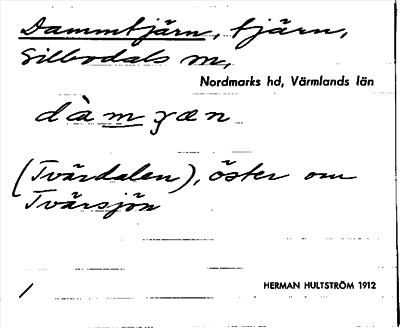 Dammtjärn, tjärn,
Silbodals sn,
Nordmarks hd, Värmlands län
dàmʒæn
(Tvärdalen), öster om
Tvärsjön
/
HERMAN HULTSTRÖM 1912